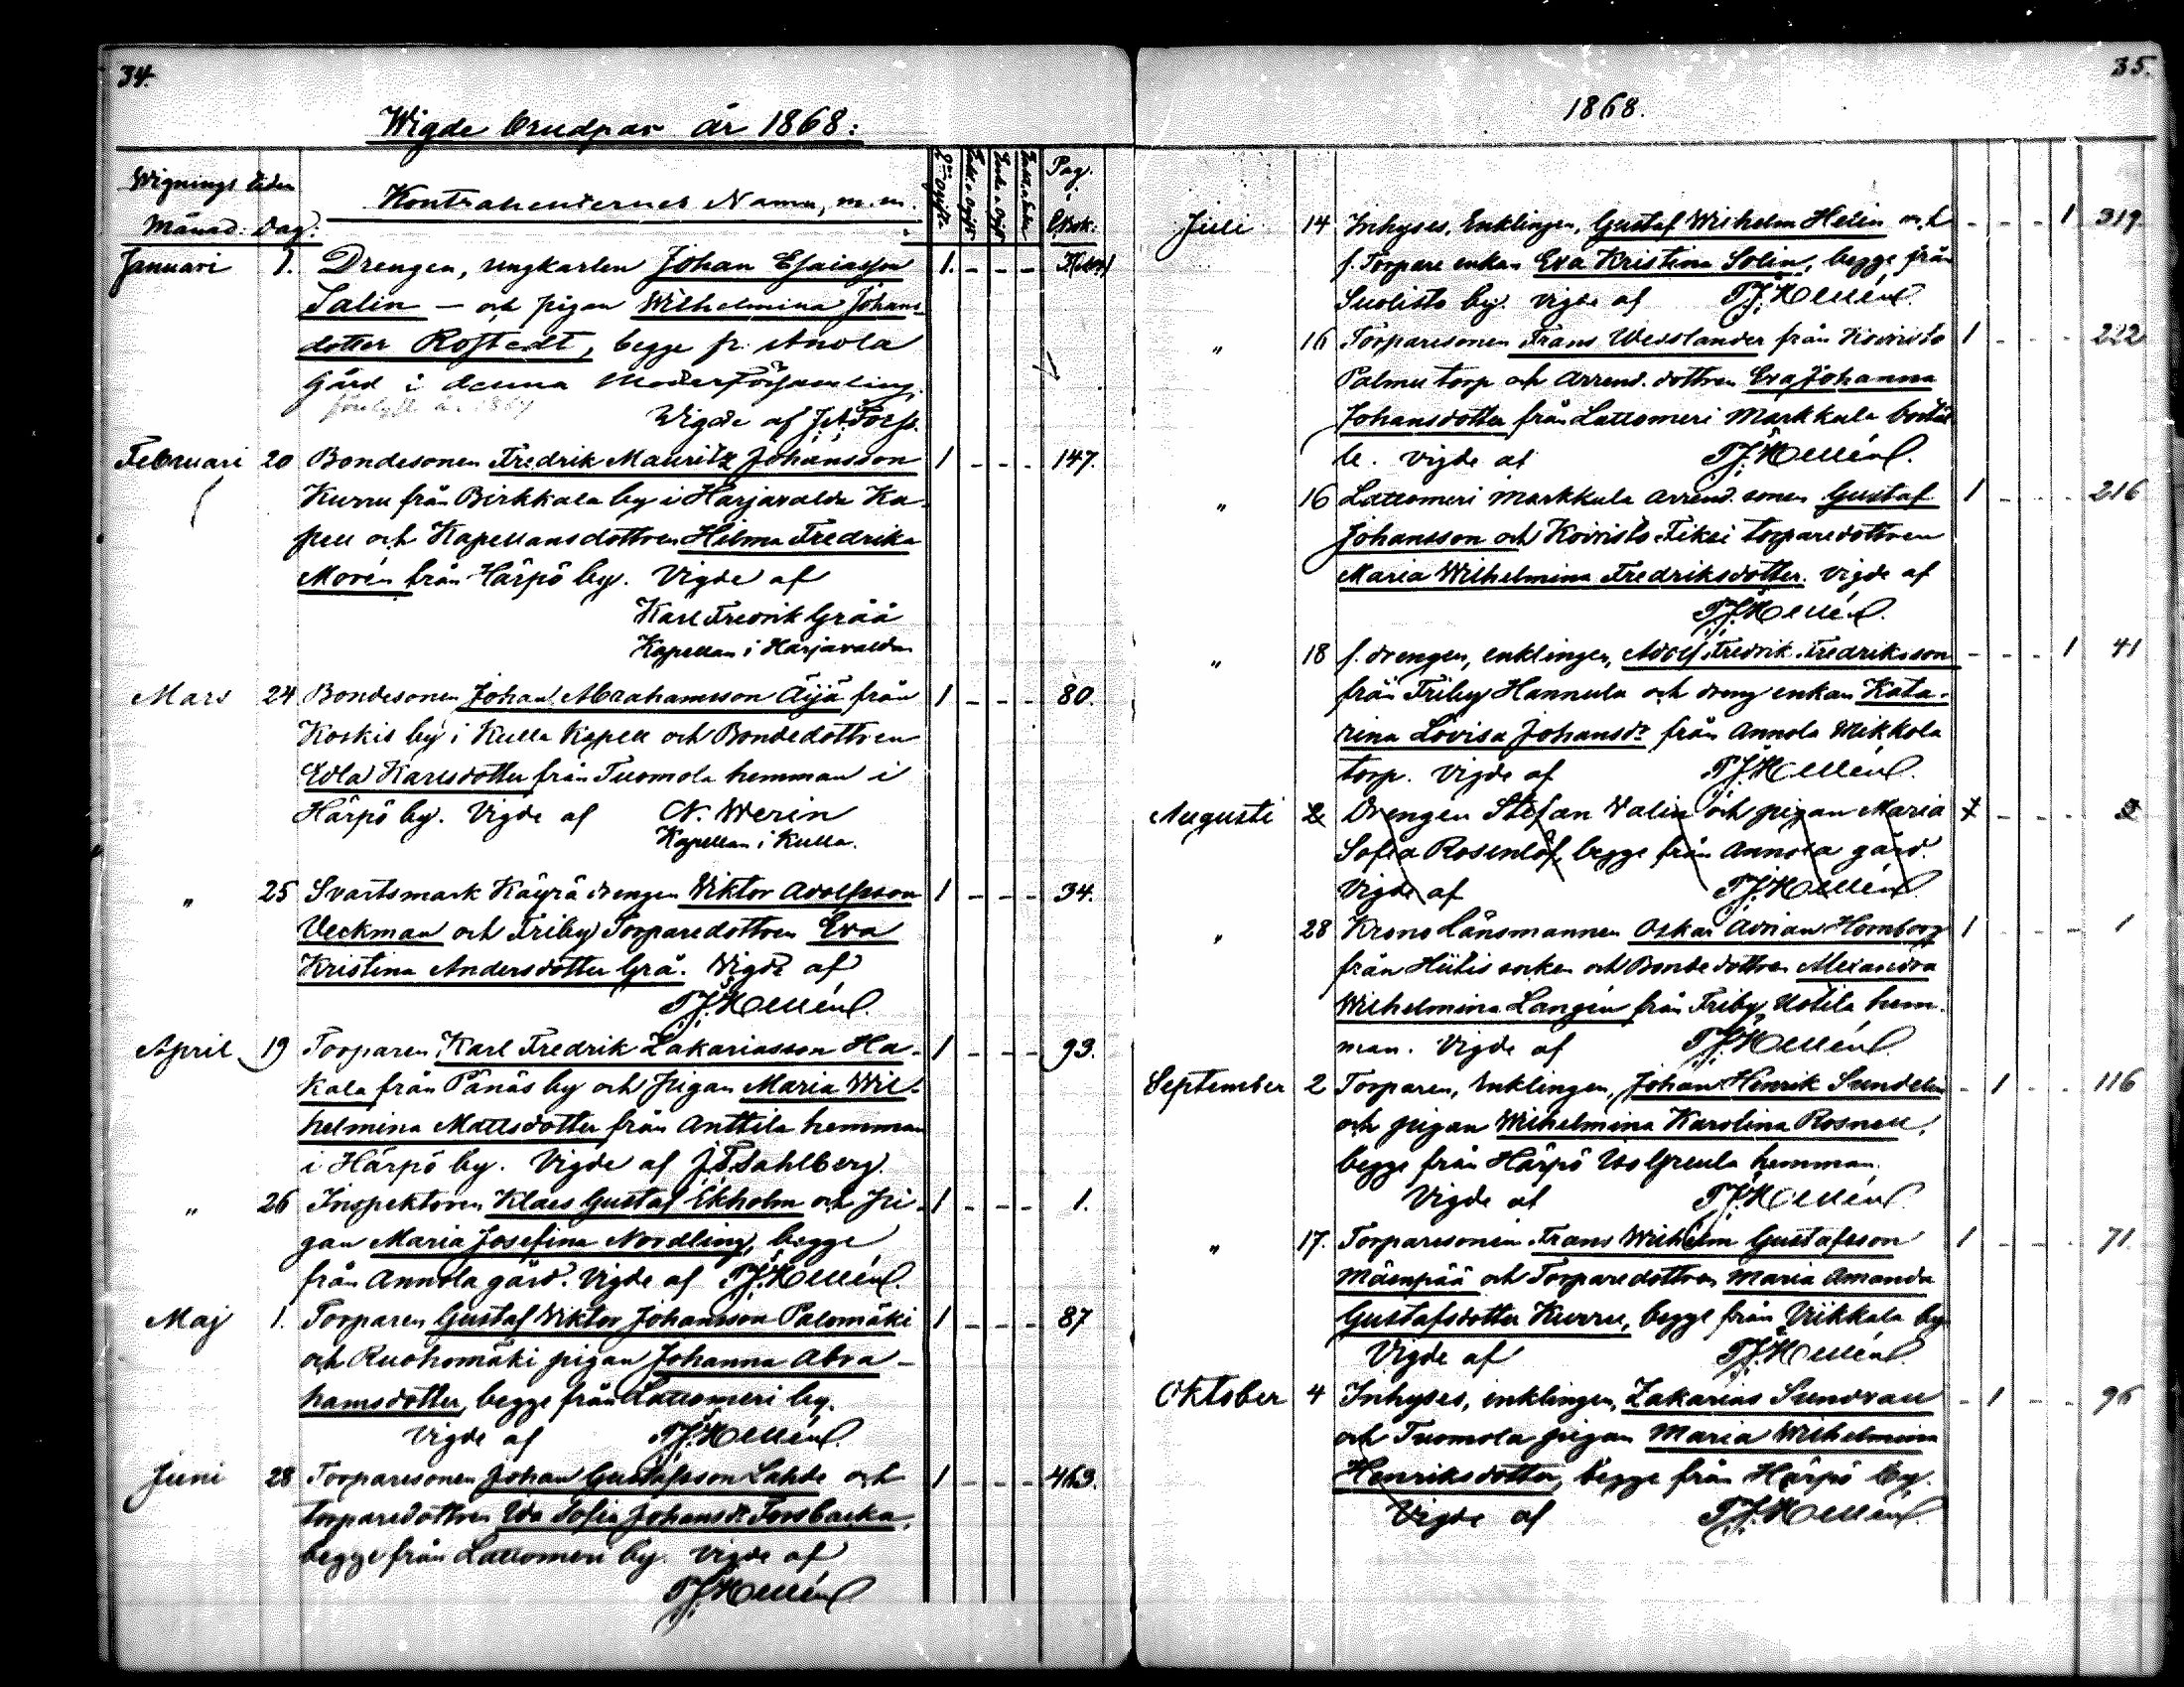 34.
Wigde brudpar år 1868:
Wignings tiden
Månad: dag:
Kontrahenternes Namn, m.m.
Pag. i C. Bok:
Januari 1. Drengen, ungkarlen Johan Esaiasson 1. - - -
Salin — och pigan Wilhelmina Johans-
dotter Rostedt, begge fr. Anola
Gård i denna Moderförsamling.
Wigde af
Februari 20 Bondesonen Fredrik Mauritz Johansson 1 - - - 147.
Kurru från Birkkala by i Harjavalda Ka-
pell och Kapellansdottren Hilma Fredrika
Morén från Härpö by. Vigde af
Karl Fredrik Gråå
Kapellan i Harjavalda
Mars 24 Bondesonen Johan Abrahamsson Äijä från 1 - - - 80.
Koskis by i Kulla Kapell och Bondedottren
Edla Karlsdotter från Tuomola hemman i
Härpö by. Vigde af N. Werin
Kapellan i Kulla.
" 25 Svartsmark Käyrä drengen Wiktor Adolfsson 1 - - - 34.
Veckman och Friby Torparedottren Eva
Kristina Andersdotter Grå. Vigde af
F.J. Hellén.
April 19 Torparen Karl Fredrik Zakariasson Ha- 1 - - - 93.
kala från Pänäs by och Pigan Maria Wil-
helmina Mattsdotter från Anttila hemman
i Härpö by. Vigde af J.F. Sahlberg.
" 26 Inspektoren Klaes Gustaf Ekholm och Pi- 1 - - - 1.
gan Maria Josefina Nordling, begge
från Annola gård. Vigde af F.J. Hellén.
Maj 1. Torparen Gustaf Wiktor Johansson Palomäki 1 - - - 87
och Ruohomäki pigan Johanna Abra-
hamsdotter, begge från Lattomeri by.
Vigde af F.J. Hellén.
Juni 28 Torparesonen Johan Gustafsson Lahde och 1 - - - 463.
torparedottren Ida Sofia Johansdr Forsbacka,
begge från Lattomeri by. Vigde af
F.J. Hellén
35.
1868.
Juli 14 Inhyses, Enklingen, Gustaf Wilhelm Helin och - - - 1 319
f. Torpare enkan Eva Kristina Solin, begge från
Suolisto by. Vigde af F.J. Hellén.
" 16 Torparesonen Frans Wesslander från Koivisto 1 - - - 222
Palmu torp och Arrend. dottren Eva Johanna
Johansdotter från Lattomeri Markkula bostäl-
le. Vigde af F.J. Hellén.
" 16 Lattomeri Markkula arrend. sonen Gustaf 1 - - - 216
Johansson och Koivisto Fiksi torparedottren
Maria Wilhelmina Fredriksdotter. Vigde af
F.J. Hellén.
" 18 f. drengen, enklingen, Adolf Fredrik Fredriksson - - - 1 41
från Friby Hannula och dreng enkan Kata-
rina Lovisa Johansdr från Annola Mikkola
torp. Vigde af F.J. Hellén.
Augusti 2 Drengen Stefan Valin och pigan Maria 1 - - -
Sofia Rosenlöf, begge från Annola gård.
Vigde af F.J. Hellén
" 28 Krono länsmannen Oskar Adrian Homborg 1 - - - 1
från Hiitis socken och Bondedottren Alexandra
Wilhelmina Langén från Friby Uotila hem-
man. Vigde af F.J. Hellén
September 2 Torparen, Enklingen, Johan Henrik Sundelin - 1 - - 116
och pigan Wilhelmina Karolina Rosnell,
begge från Härpö Iso Greula hemman.
Vigde af F.J. Hellén
" 17. Torparesonen Frans Wilhelm Gustafsson 1 - - - 71.
Mäenpää och Torparedottren Maria Amanda
Gustafsdotter Kurru, begge från Viikkala by
Vigde af F.J. Hellén
Oktober 4 Inhyses, enklingen, Zakarias Sundvall - 1 - - 96
och Tuomola pigan Maria Wilhelmina
Henriksdotter, begge från Härpö by.
Vigde af F.J. Hellén